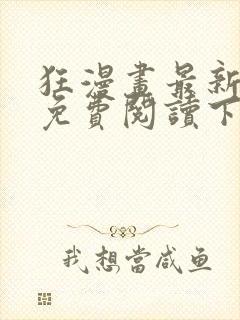 狂漫畫最新
免費閱讀下
我想當咸鱼